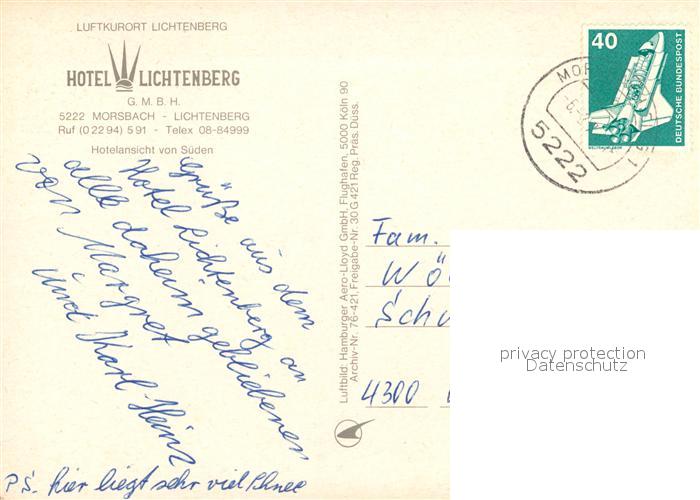 LUFTKURORT LICHTENBERG
HOTEL LICHTENBERG
G. M. B. H.
5222 MORSBACH - LICHTENBERG
Ruf (0 22 94) 5 91 - Telex 08-84999
Hotelansicht von Süden
Grüße aus dem
Hotel Lichtenberg an
alle daheim gebliebenen
von Margret
und Karl-Heinz
PS. hier liegt sehr viel Schnee
Luftbild: Hamburger Aero-Lloyd GmbH, Flughafen, 5000 Köln 90
Archiv-Nr. 76-421, Freigabe-Nr. 30 G 421 Reg. Präs. Düss.
40
DEUTSCHE BUNDESPOST
5222
Fam.
4300
privacy protection
Datenschutz